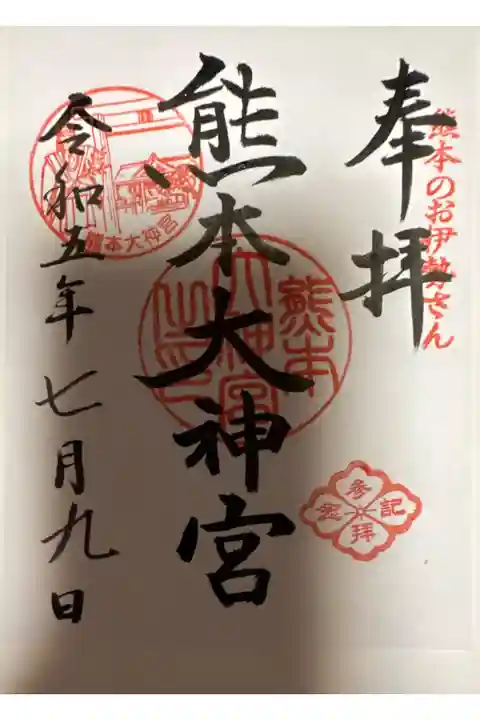 熊本のお伊勢さん
奉拝
熊本大神宮
熊本
大神宮
之印
熊本大神宮
参拝
記念
令和五年七月九日